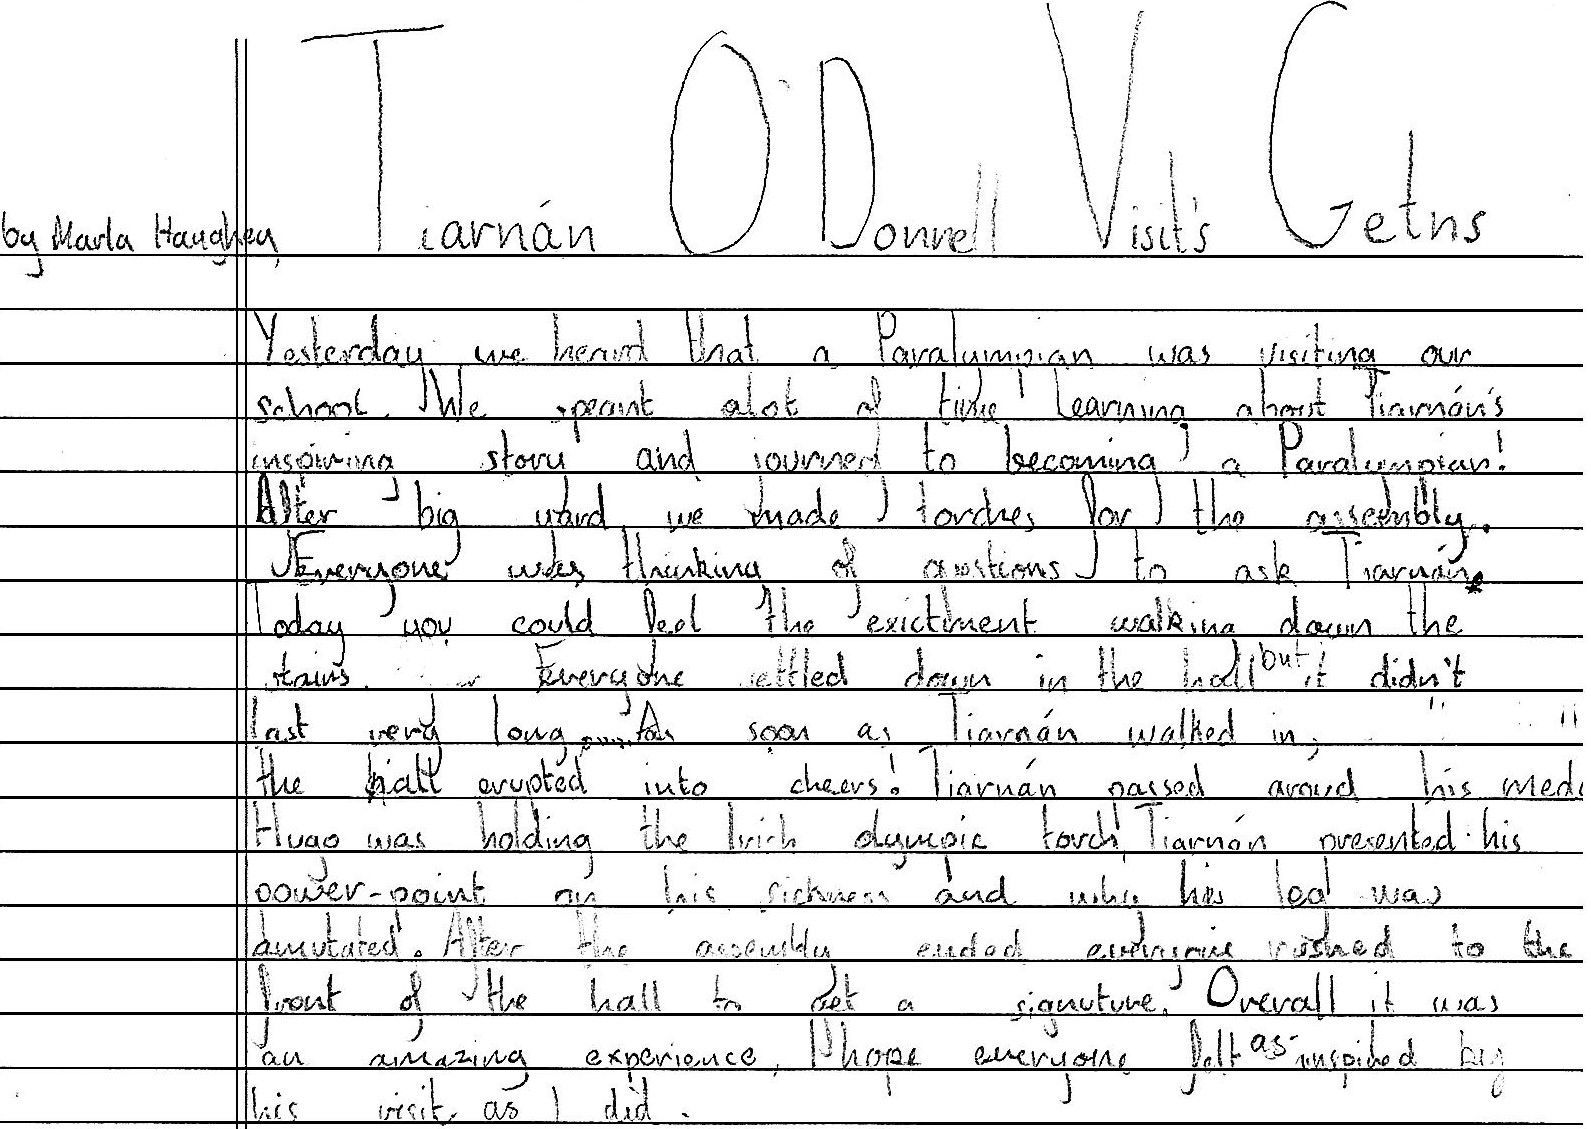 Tiarnán O'Donnell Visit's Getns
by Marla Haughey
Yesterday we heard that a Paralympian was visiting our
school. We speant alot of time learning about Tiarnán's
inspiring story and journey to becoming a Paralympian!
After big yard, we made torches for the assembly.
Everyone was thinking of qustions to ask Tiarnán.
Today you could feel the exictment walking down the
stairs. Everyone settled down in the hall but it didn't
last very long. As soon as Tiarnán walked in,
the hall erupted into cheers! Tiarnán passed aroud his meda
Hugo was holding the Irish olympic torch! Tiarnán presented his
power-point on his sickness and why his leg was
amutated. After the assembly ended everyone rushed to the
front of the hall to get a signuture. Overall it was
an amazing experience, I hope everyone felt as inspired by
his visit as I did.